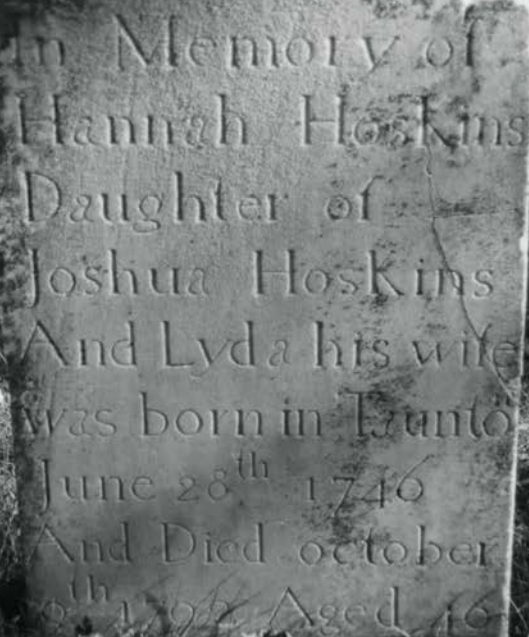 In Memory of
Hannah Hoskins
Daughter of
Joshua Hoskins
And Lyda his wife
was born in Taunto
June 28th 1746
And Died october
Aged 46